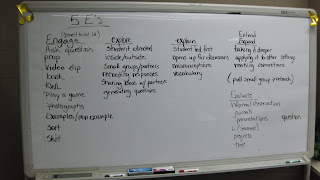 5 E's
Engage
Ask question
prop
Video clip
book
KWL
Play a game
photographs
Examples/non example
Sort
Skit
explore
Student directed
inside/outside
Small groups/partners
recording responses
Sharing ideas w/ partners
generating questions
explain
Student led first
opens up for discussions
misconceptions
vocabulary
Extend
Expand
taking it deeper
applying it to other settings
making connections
(pull small group reteach)
Evaluate
informal observation
journals
presentations
question
projects
test